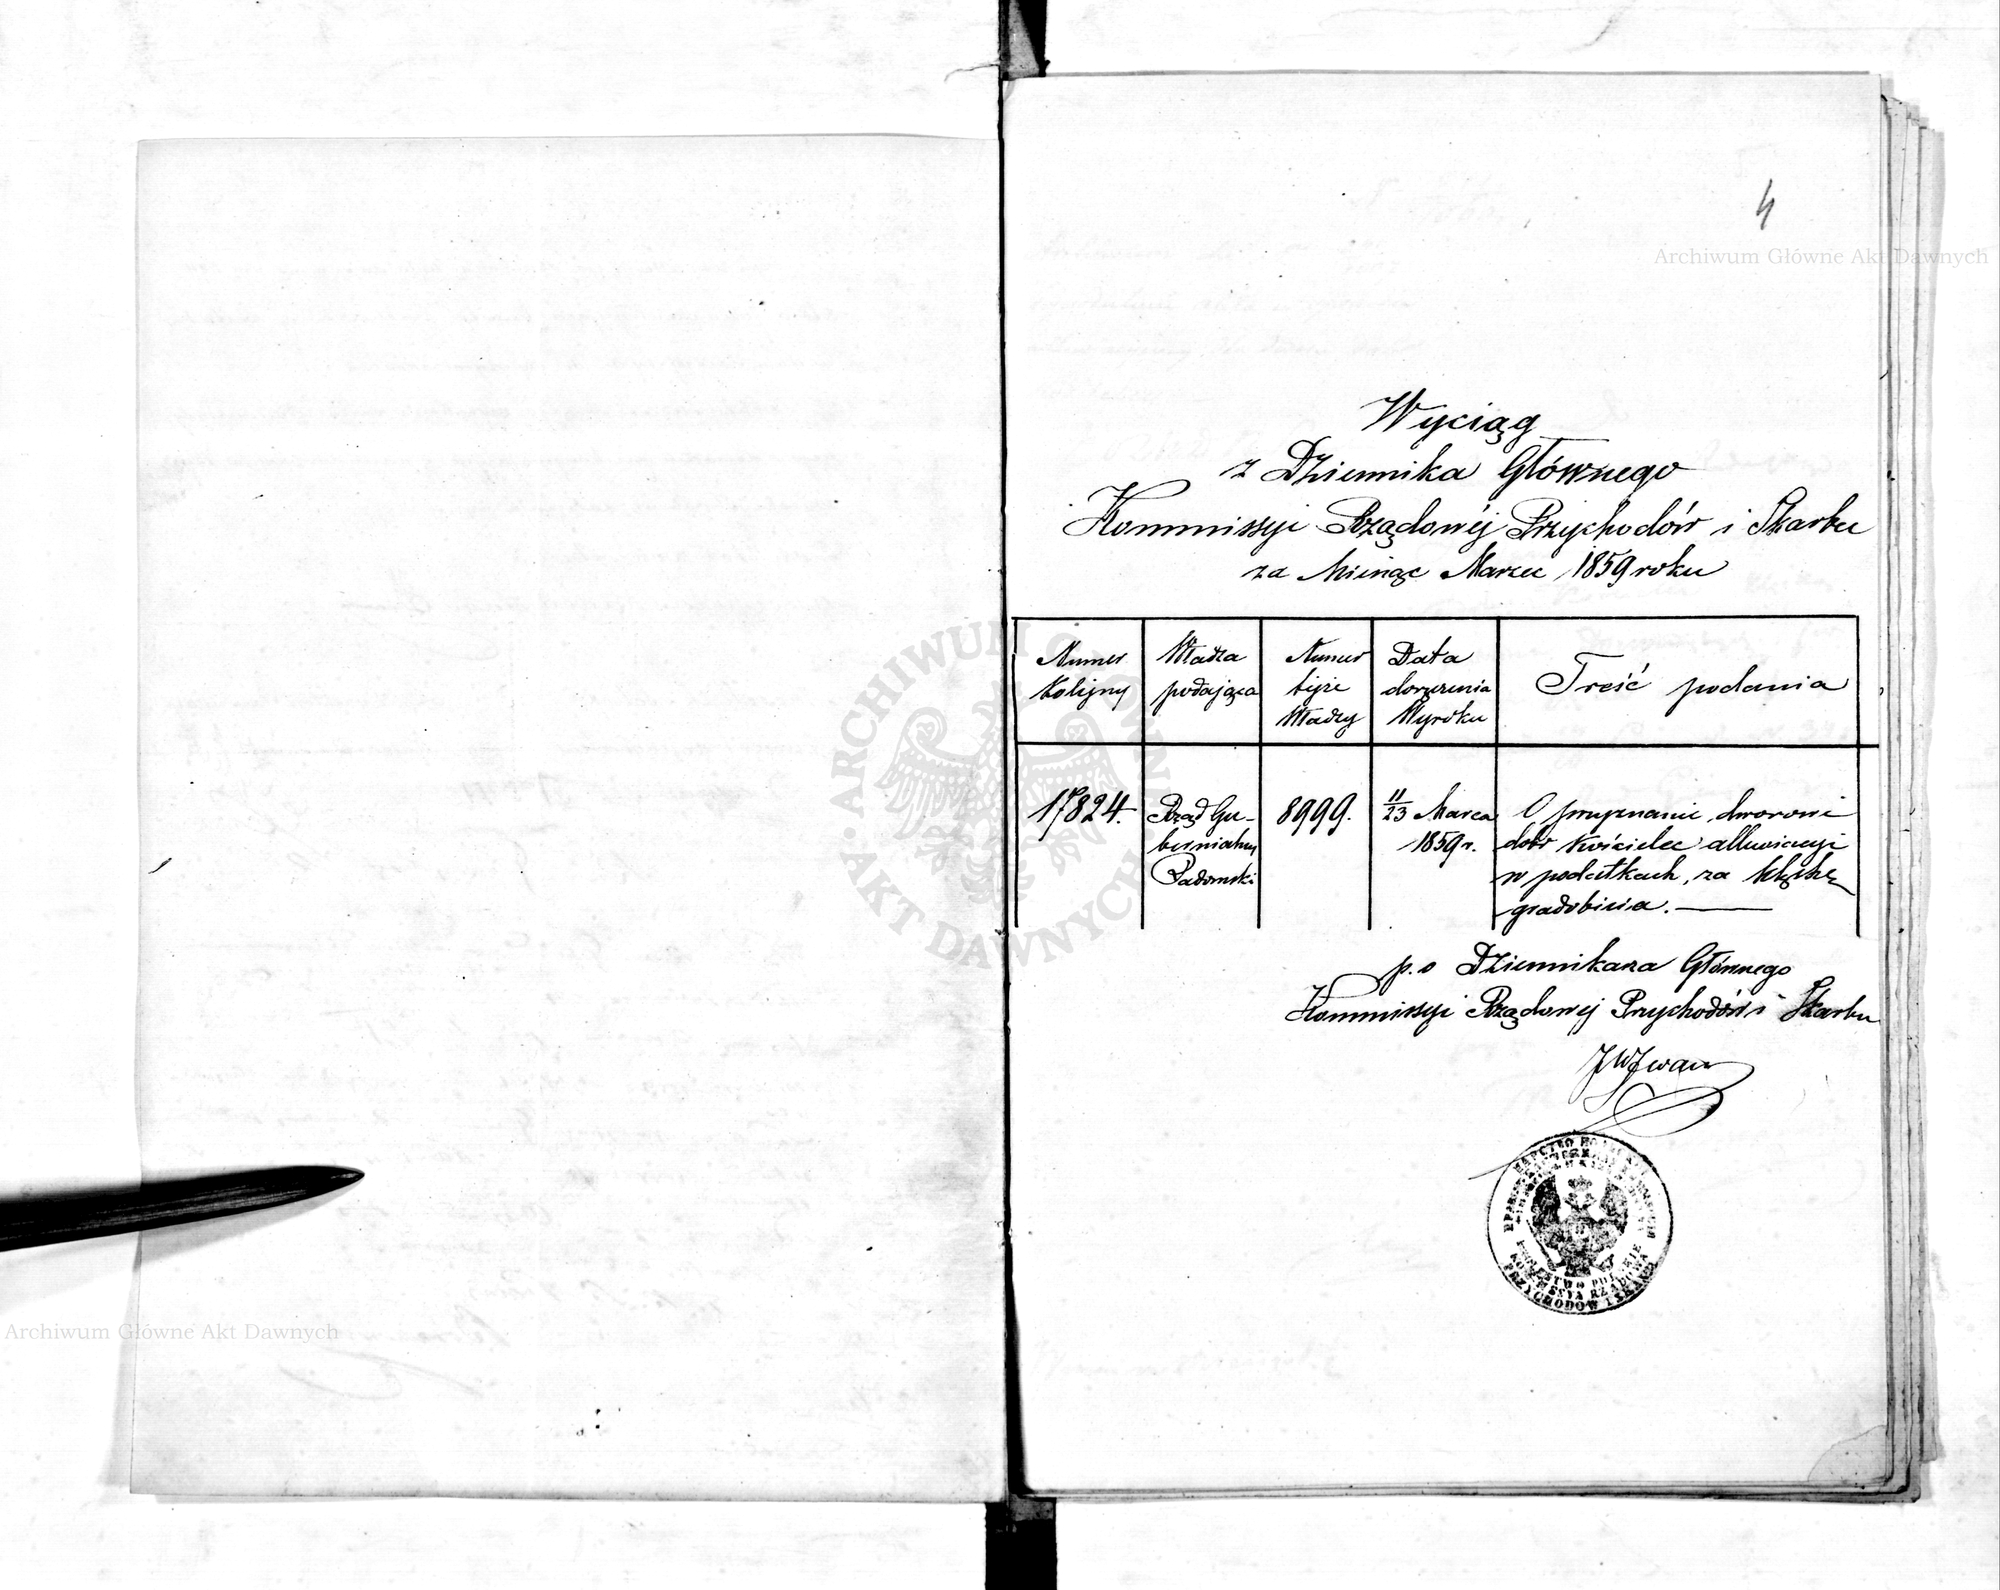 4
Archiwum Główne Akt Dawnych
Wyciąg
z Dziennika Głównego
Kommissyi Rządowéj Przychodów i Skarbu
za Miesiąc Marzec 1859 roku
Numer
Kolejny
Władza
podająca
Numer
téjże
Władzy
Data
doręczenia
Wyroku
Treść podania
17824.
Rząd Gu-
bernialny
Radomski
8999.
11/23 Marca
1859 r.
O przyznanie dworowi
dóbr Kościelec alluwiacyi
w podatkach, za klęskę
gradobicia.
p.o Dziennikarza Głównego
Kommissyi Rządowej Przychodów i Skarbu
KROLESTWO POLSKIE
KOMMISSYA RZĄDOWA
PRZYCHODOW I SKARBU
ARCHIWUM GŁÓWNE
AKT DAWNYCH
Archiwum Główne Akt Dawnych